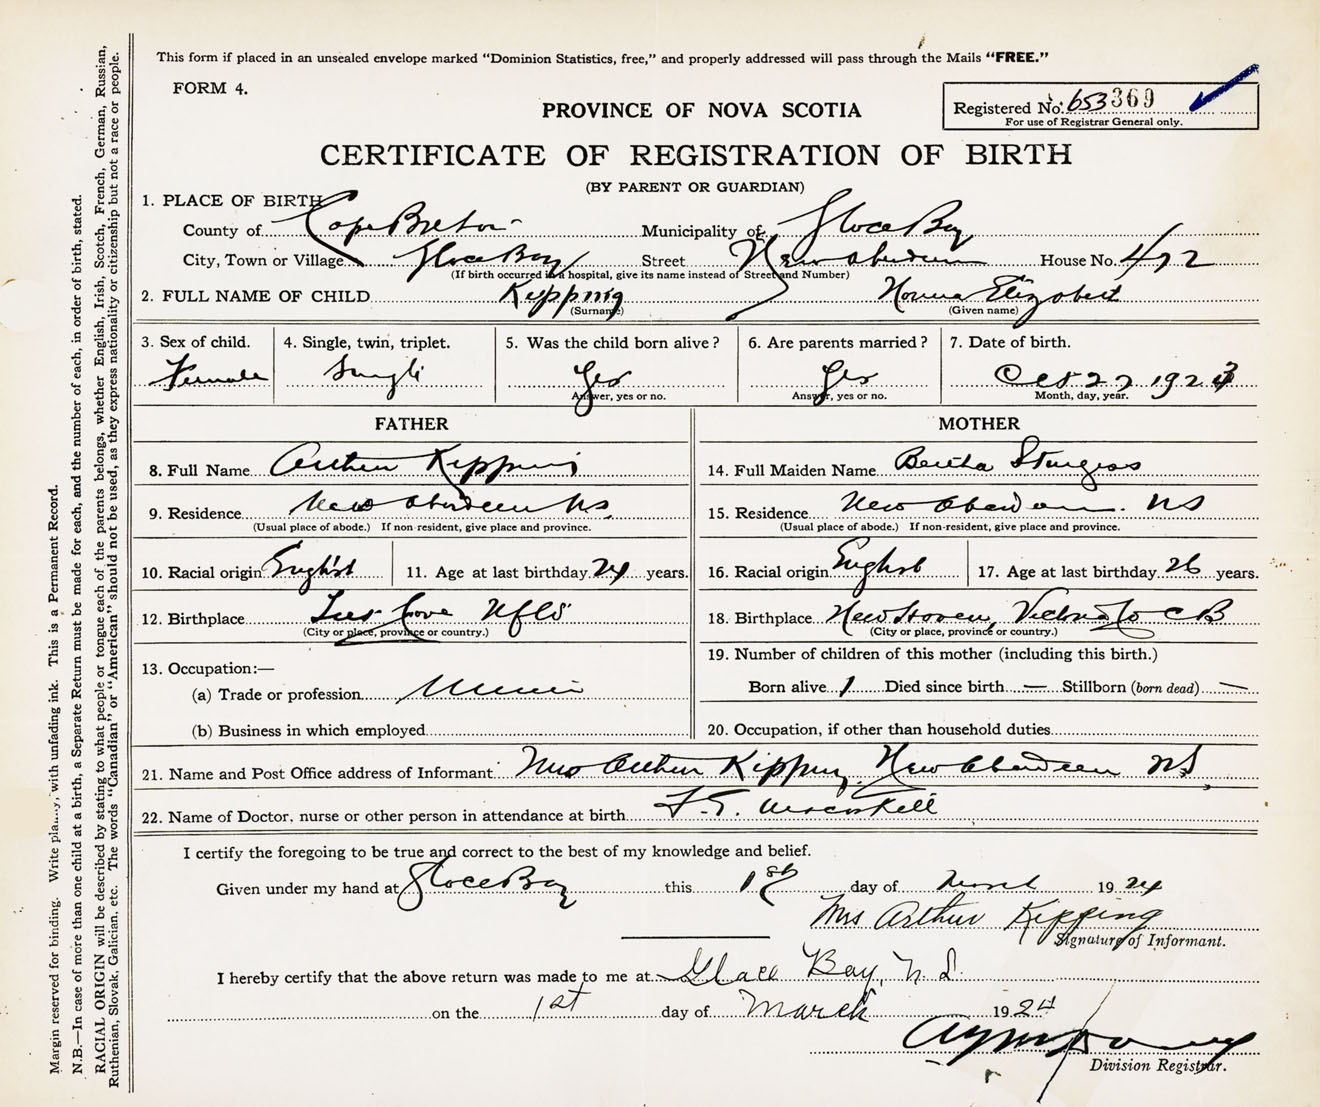 This form if placed in an unsealed envelope marked "Dominion Statistics, free," and properly addressed will pass through the Mails "FREE."
FORM 4.
Registered No. 653369
For use of Registrar General only.
PROVINCE OF NOVA SCOTIA
CERTIFICATE OF REGISTRATION OF BIRTH
(BY PARENT OR GUARDIAN)
1. PLACE OF BIRTH
County of Cape Breton Municipality of Glace Bay
City, Town or Village Glace Bay Street New Aberdeen House No. 472
(If birth occurred in a hospital, give its name instead of Street and Number)
2. FULL NAME OF CHILD Kipping Elizabeth
(Surname) (Given name)
3. Sex of child. 4. Single, twin, triplet. 5. Was the child born alive? 6. Are parents married? 7. Date of birth.
Female Single Yes Yes Oct 22 1923
Answer, yes or no. Answer, yes or no. Month, day, year.
FATHER MOTHER
8. Full Name Arthur Kipping 14. Full Maiden Name Bertha Sturgess
9. Residence New Aberdeen NS. 15. Residence New Aberdeen. NS
(Usual place of abode.) If non-resident, give place and province. (Usual place of abode.) If non-resident, give place and province.
10. Racial origin English 11. Age at last birthday 24 years. 16. Racial origin English 17. Age at last birthday 26 years.
12. Birthplace Cove Nfld 18. Birthplace New Haven, Victoria Co CB
(City or place, province or country.) (City or place, province or country.)
13. Occupation:— 19. Number of children of this mother (including this birth.)
(a) Trade or profession Miner Born alive 1 Died since birth — Stillborn (born dead) —
(b) Business in which employed 20. Occupation, if other than household duties
21. Name and Post Office address of Informant Mrs Arthur Kipping, New Aberdeen NS
22. Name of Doctor, nurse or other person in attendance at birth
I certify the foregoing to be true and correct to the best of my knowledge and belief.
Given under my hand at Glace Bay this 1st day of March 1924
Mrs Arthur Kipping
Signature of Informant.
I hereby certify that the above return was made to me at Glace Bay, N.S.
on the 1st day of March 1924
Division Registrar.
Margin reserved for binding. Write plainly, with unfading ink. This is a Permanent Record.
N.B.—In case of more than one child at a birth, a Separate Return must be made for each, and the number of each, in order of birth, stated.
RACIAL ORIGIN will be described by stating to what people or tongue each of the parents belongs, whether English, Irish, Scotch, French, German, Russian,
Ruthenian, Slovak, Galician, etc. The words "Canadian" or "American" should not be used, as they express nationality or citizenship but not a race or people.